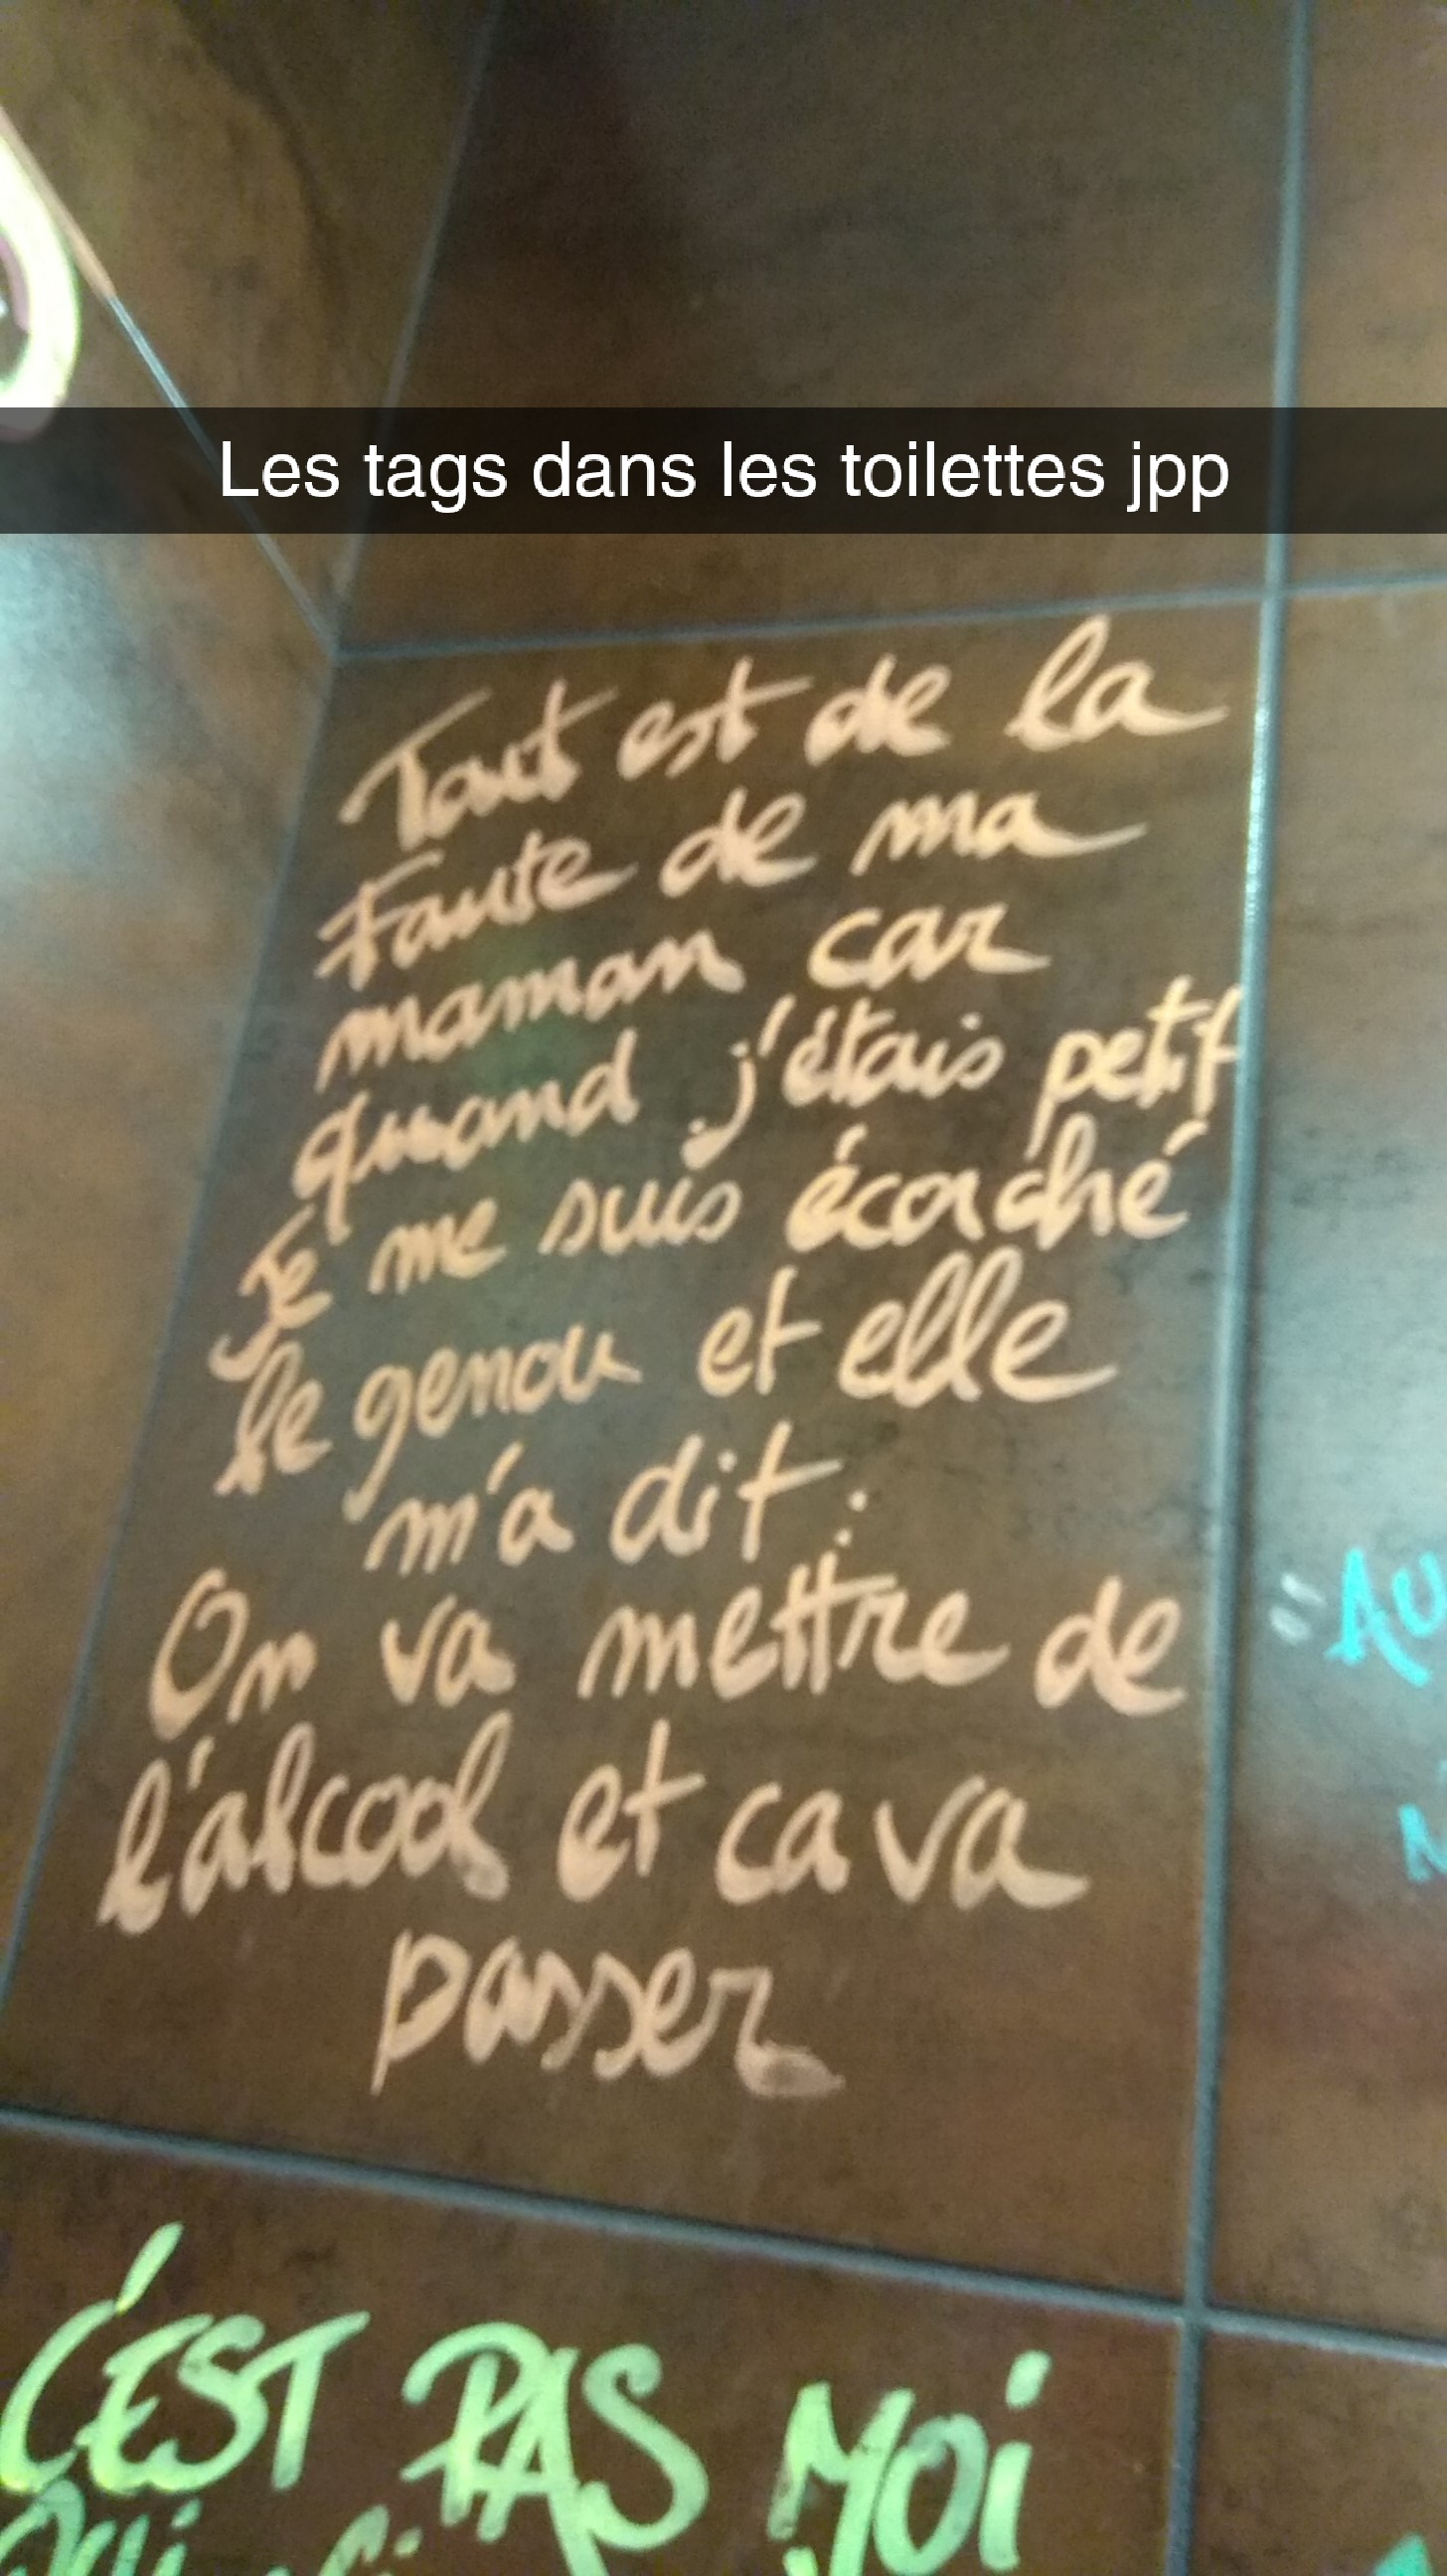 Les tags dans les toilettes jpp
Tout est de la
Faute de ma
maman car
quand j'étais petit
Je me suis écorché
le genou et elle
m'a dit :
On va mettre de
l'alcool et ca va
passer
"AU
C'EST PAS MOi
Qui